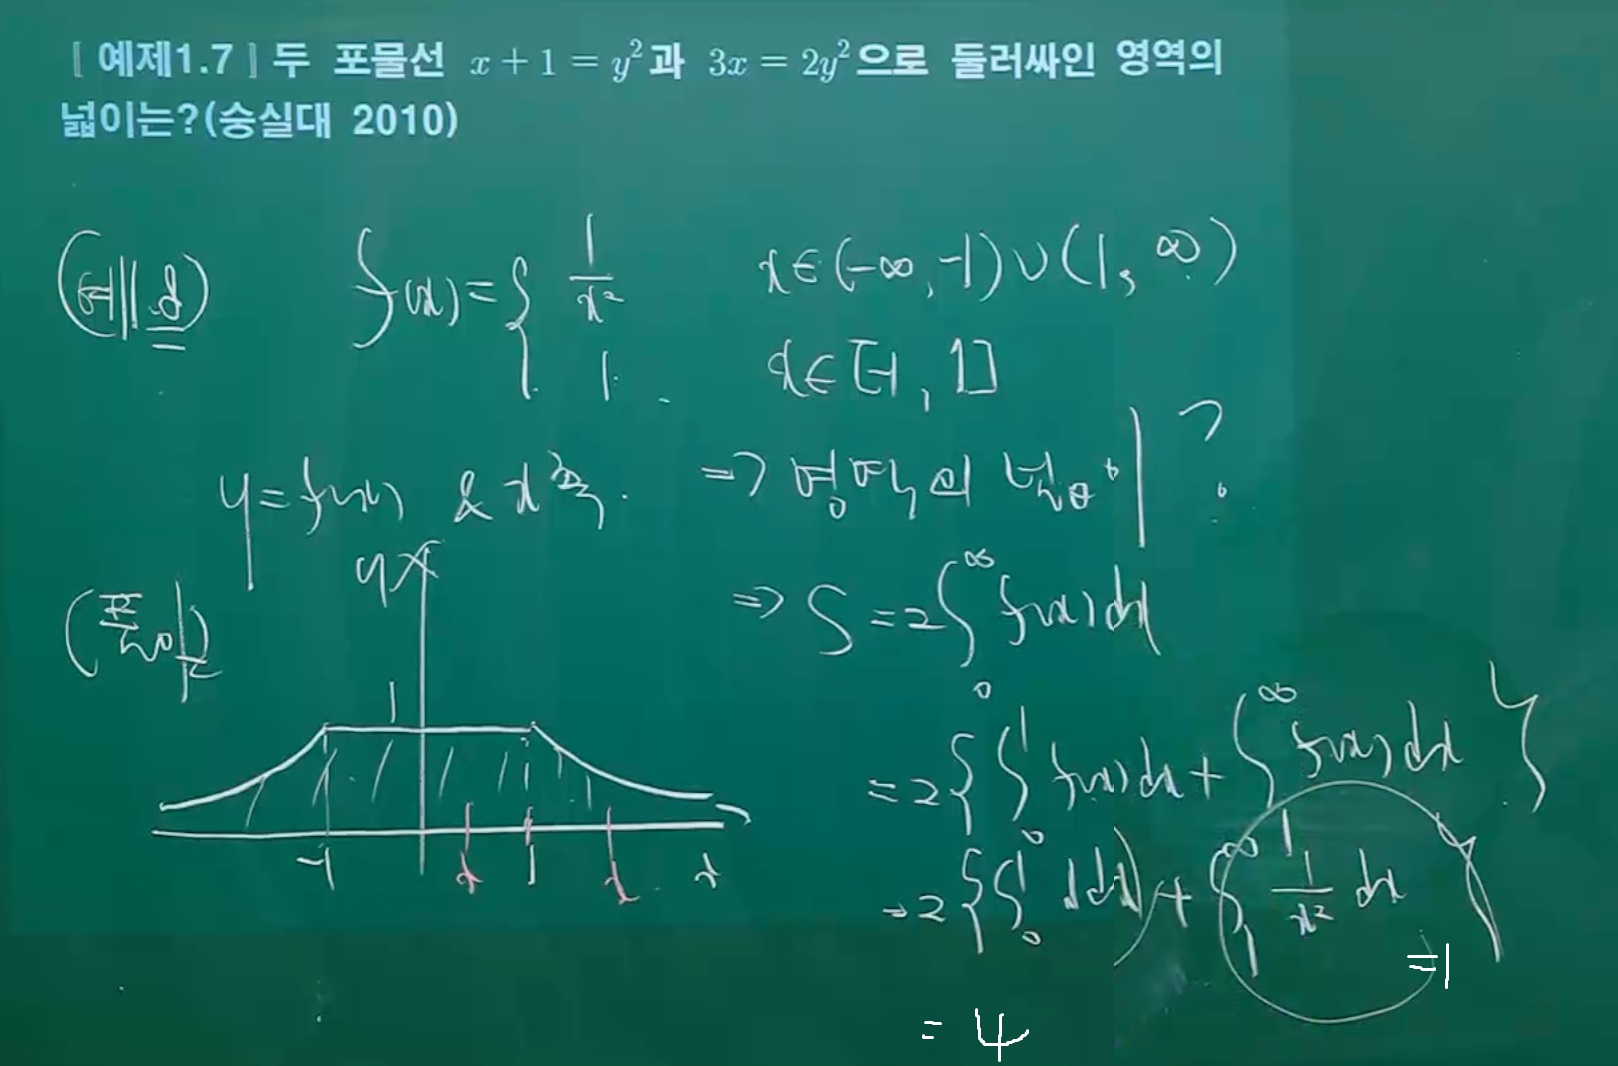 [ 예제1.7 ] 두 포물선 x + 1 = y²과 3x = 2y²으로 둘러싸인 영역의
넓이는?(숭실대 2010)
f(x) = { 1/x² x∈(-∞, -1)∪(1, ∞)
1 x∈[-1, 1]
y = f(x) & x축. ⇒ 영역의 넓이?
(풀이)
⇒ S = 2∫₀^∞ f(x)dx
= 2{∫₀¹ f(x)dx + ∫₁^∞ f(x)dx}
= 2{∫₀¹ 1dx + ∫₁^∞ 1/x² dx}
= 1
= 4
y
1
-1 x 1 x x